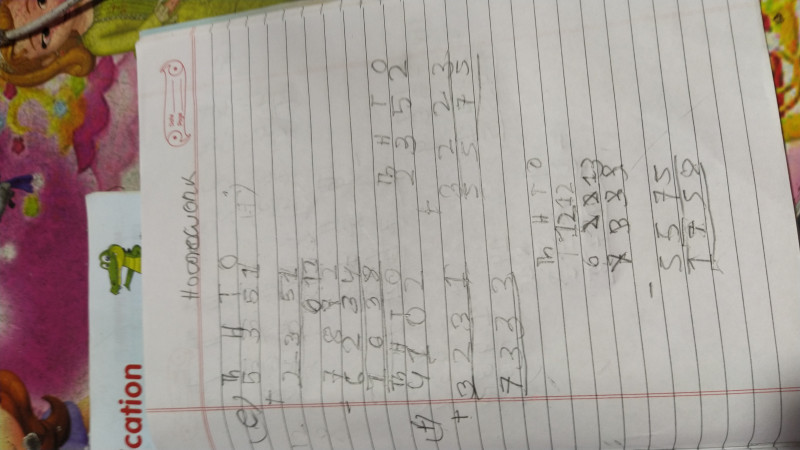 Homework
(e) Th H T O
5 3 5 1
+ 2 3 5 1
9 12
7 8 7 2
- 6 2 3 4
1 0 3 8
Th H T O
(f) 4 1 0 2
+ 3 2 3 1
7 3 3 3
Th H T O
2 3 5 2
+ 3 2 2 3
5 5 7 5
Th H T O
12 12
7 3 3 3
- 5 5 7 5
1 7 5 8
cation